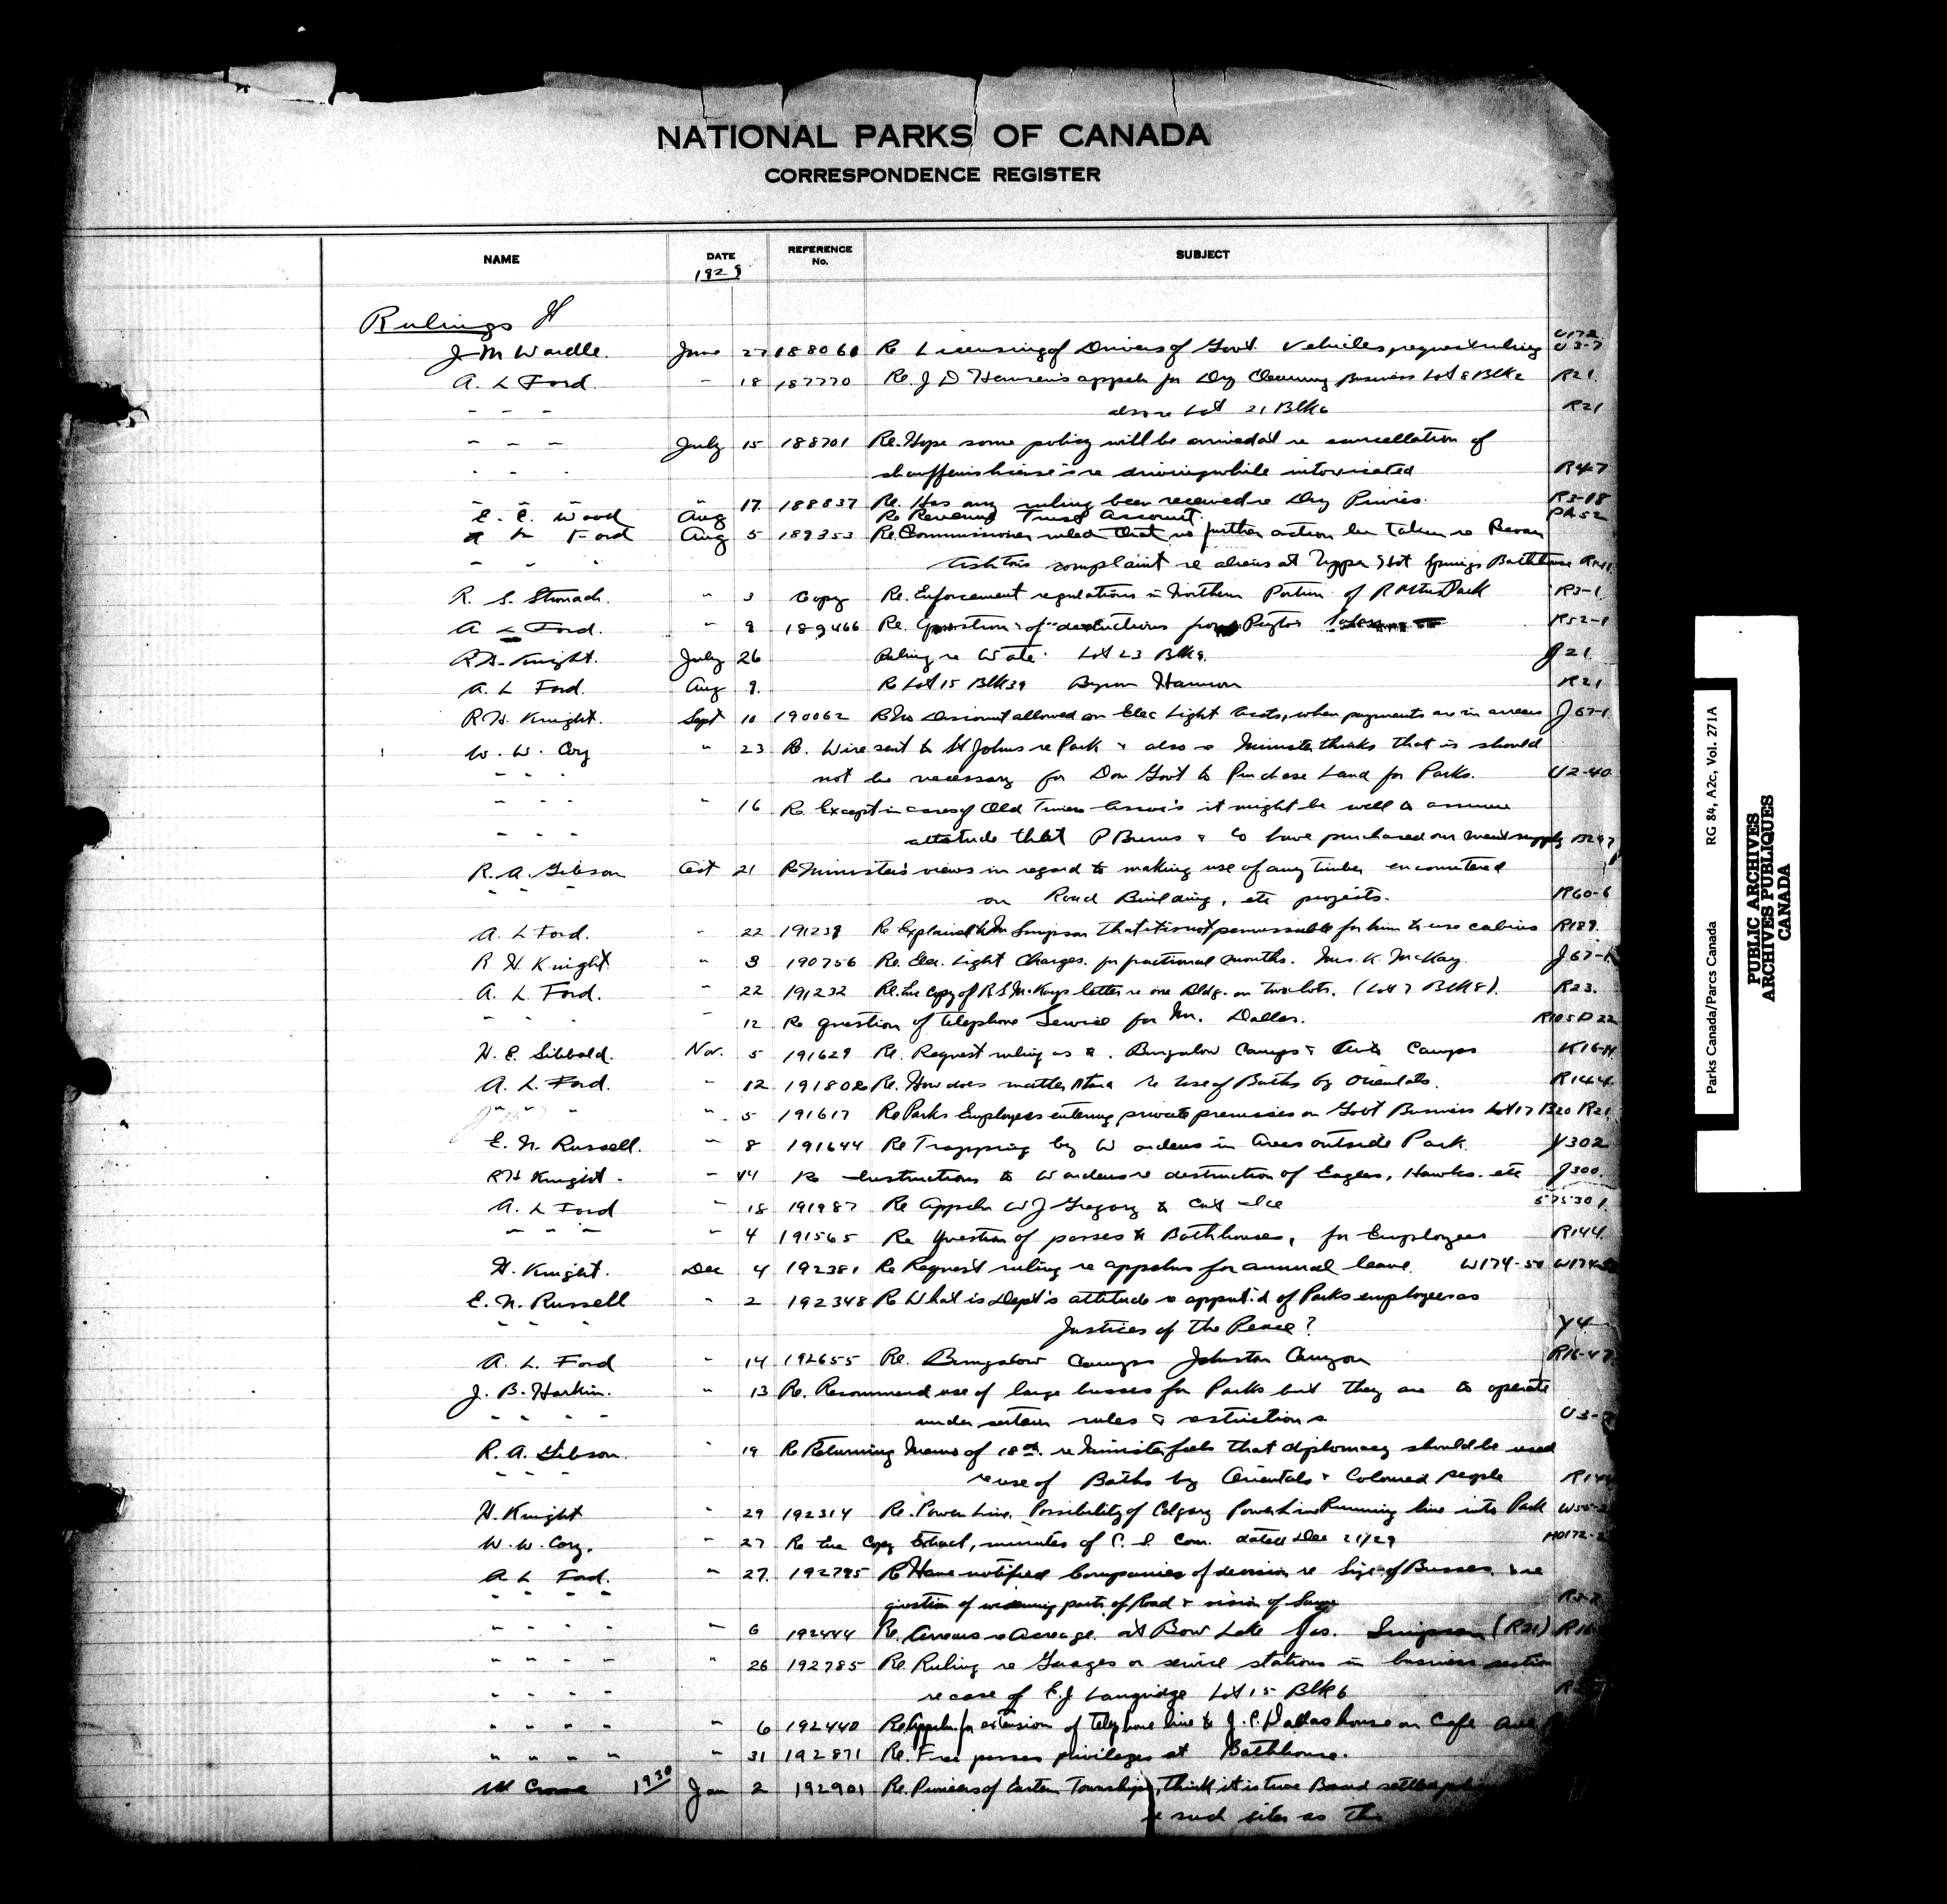 NATIONAL PARKS OF CANADA
CORRESPONDENCE REGISTER
NAME DATE REFERENCE No. SUBJECT
1929
Rulings
J M Wardle. June 27 188061 Re Licensing of Drivers of Govt. Vehicles, request ruling U172 U3-7
A. L Ford. " 18 187770 Re. J D Hansen's appeln for Dry Cleaning Business Lot 8 Blk 2 R21.
" " " also re Lot 21 Blk 6 R21
" " " July 15 188701 Re. Hope some policy will be arrived at re cancellation of
" " " chauffeurs license's re driving while intoxicated R4-7
" " " " 17. 188837 Re. Has any ruling been received re Dry Privies. R3-18
E. C. Wood Aug Re Revenue Trust Account. PA52
A L Ford Aug 5 189353 Re. Commissioner ruled that no further action be taken re
" " " complaint re aliens at Upper Hot Springs Bathhouse
R. S. Stronach. " 3 Copy Re. Enforcement regulations in Northern Portion of R Mtns Park R3-1
A L Ford. " 9 189466 Re. Question of deductions from R52-1
R.H. Knight. July 26 Ruling re Lot 23 Blk 9. J21
A. L Ford. Aug 9. Re Lot 15 Blk 39 Byron Hanson R21
R H. Knight. Sept 10 190062 Re No Discount allowed on Elec Light accts, when payments are in arrears J67-1
W. W. Cory " 23 Re. Wire sent to St Johns re Park & also re Minister thinks that is should
" " " not be necessary for Dom Govt to Purchase Land for Parks. U2-40
" " " " 16 Re Except in cases of Old Timers Assoc's it might be well to assume
" " " attitude that P Burns & Co have purchased our meat supply
R. A. Gibson Oct 21 Re Minister's views in regard to making use of any timber encountered
" " " on Road Building, etc projects. R60-6
A. L Ford. " 22 191239 Re Explained to Mr Simpson that it is not permissable for him to use cabins R189.
R H Knight " 3 190756 Re. Elec. Light Charges. for fractional months. Mrs. K. McKay. J67-1
A. L Ford. " 22 191232 Re. Enc Copy of R S McKays letter re one Bldg. on two lots. (Lot 7 Blk 8). R23.
" " " " 12 Re question of telephone Service for Mr. Dallas. R105 D22
H. E. Sibbald. Nov. 5 191629 Re. Request ruling as to. Bungalow Camps & Auto Camps K16-14
A. L. Ford. " 12 191802 Re. How does matter stand re use of Baths by Orientals. R144
" " " " 5 191617 Re Parks Employees entering private premises on Govt Business Lot 17 B20 R21
E. N. Russell. " 8 191644 Re Trapping by Wardens in Area outside Park. Y302
R H Knight. " 14 Re Instructions to Wardens re destruction of Eagles, Hawks. etc J300.
A. L Ford " 18 191987 Re Appeln W J Gregory to Cut Ice 575301
" " " " 4 191565 Re Question of passes to Bathhouses, for Employees R144.
H. Knight. Dec 4 192381 Re Request ruling re appelns for annual leave. W174-54
E. N. Russell " 2 192348 Re What is Dept's attitude re appmt'd of Parks employees as
" " " Justices of the Peace? Y4
A. L. Ford " 14 192655 Re. Bungalow Camps Johnston Canyon R16-47
J. B. Harkin. " 13 Re. Recommend use of large busses for Parks but they are to operate
" " " " under certain rules & restrictions U3-7
R. A. Gibson. " 19 Re Returning Memo of 18th. re Minister feels that diplomacy should be used
" " " re use of Baths by Orientals & Coloured people R144
H. Knight " 29 192314 Re. Power Line, Possibility of Calgary Power Line Running line into Park
W. W. Cory. " 27 Re Enc Copy Extract, minutes of C. S. Com. dated Dec 21/29
A L Ford. " 27. 192795 Re Have notified Companies of decision re Size of Busses & re
" " " " question of widening parts of Road & R3-7
" " " " " 6 192444 Re. Arrears re Acreage. at Bow Lake Jas. Simpson (R21)
" " " " " 26 192785 Re. Ruling re Garages or service stations in business section
" " " " re case of E. J Langridge Lot 15 Blk 6
" " " " " 6 192440 Re. Appeln. for extension of telephone line to J. C. Dallas house on Cafe Ave
" " " " " 31 192871 Re. Free passes privileges at Bathhouse.
1930 Jan 2 192901 Re. Pioneers of Eastern Townships, think it is time Board settled
re such sites as this
RG 84, A2c, Vol. 271A
Parks Canada/Parcs Canada
PUBLIC ARCHIVES
ARCHIVES PUBLIQUES
CANADA